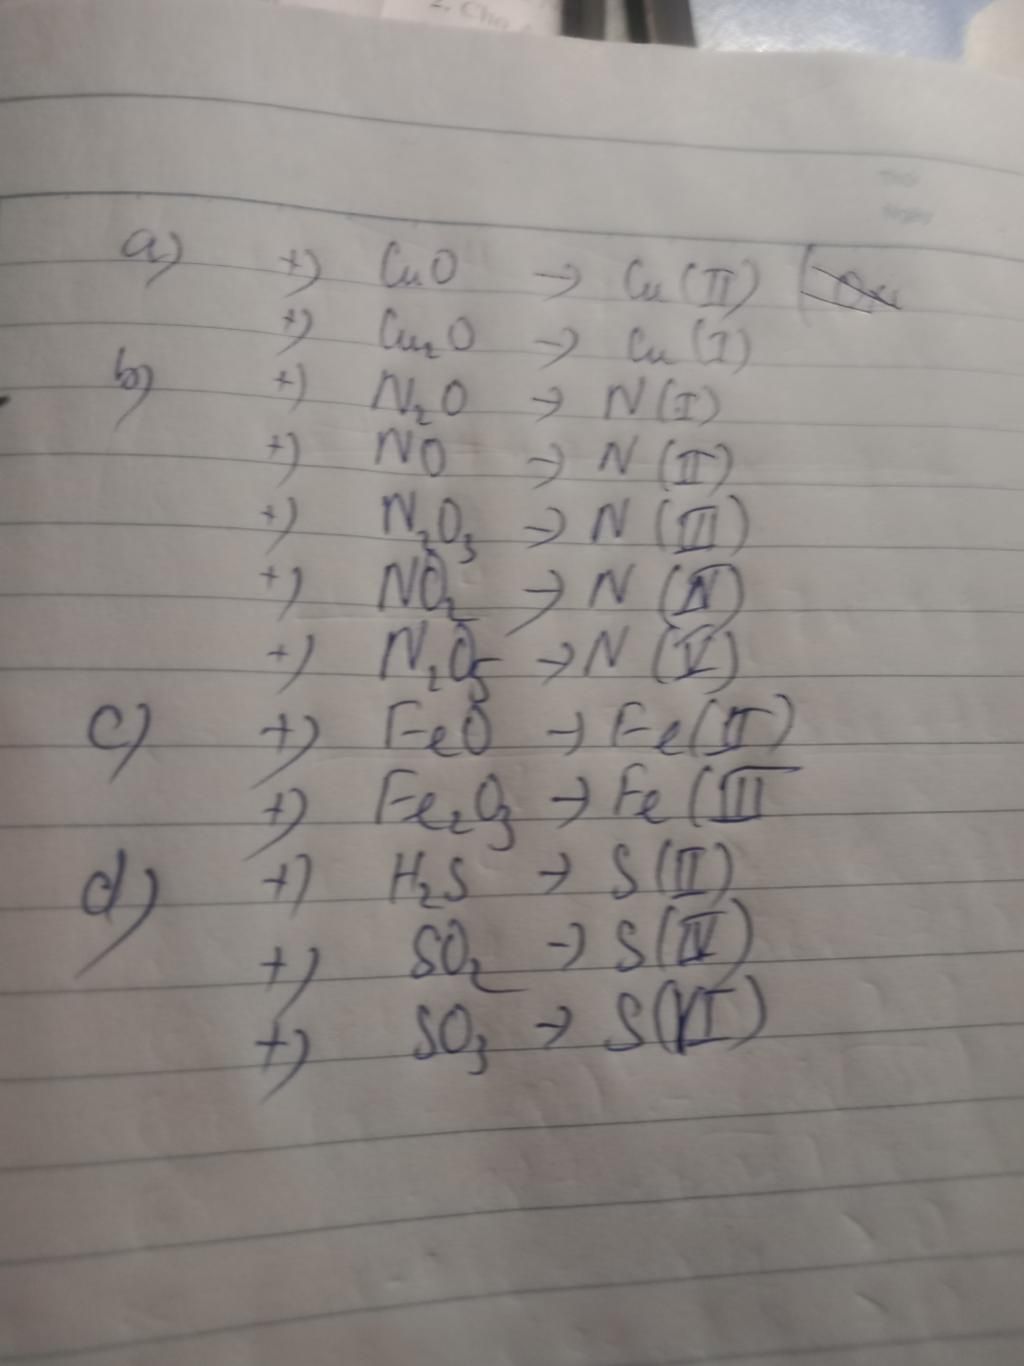 2. Cho
Thứ
Ngày
a) +) CuO → Cu (II)
+) Cu₂O → Cu (I)
b) +) N₂O → N (I)
+) NO → N (II)
+) N₂O₃ → N (III)
+) NO₂ → N (IV)
+) N₂O₅ → N (V)
c) +) FeO → Fe (II)
+) Fe₂O₃ → Fe (III
d) +) H₂S → S (II)
+) SO₂ → S (IV)
+) SO₃ → S (VI)